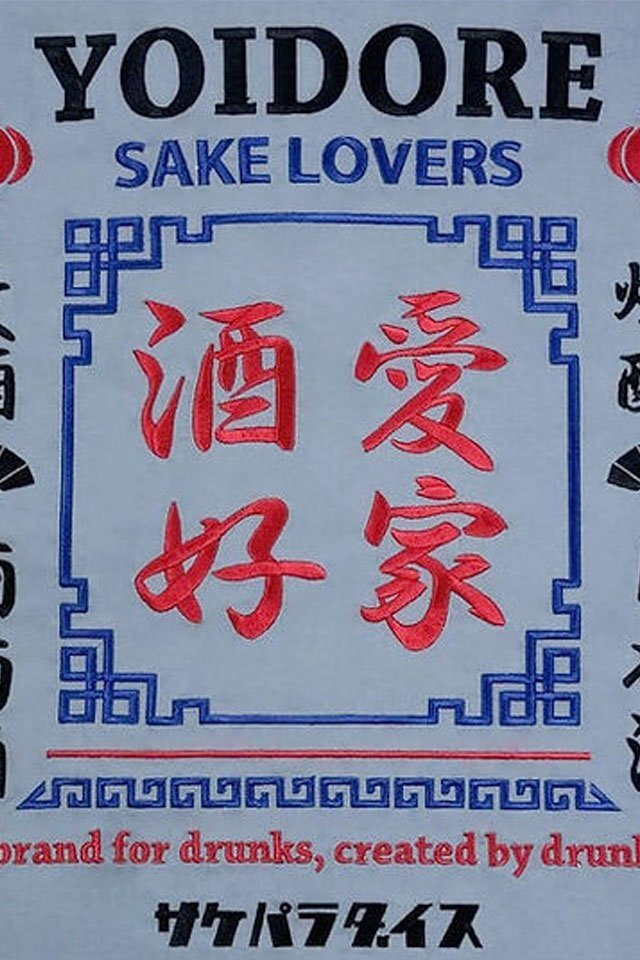 YOIDORE
SAKE LOVERS
酒愛
好家
brand for drunks, created by
サケパラダイス